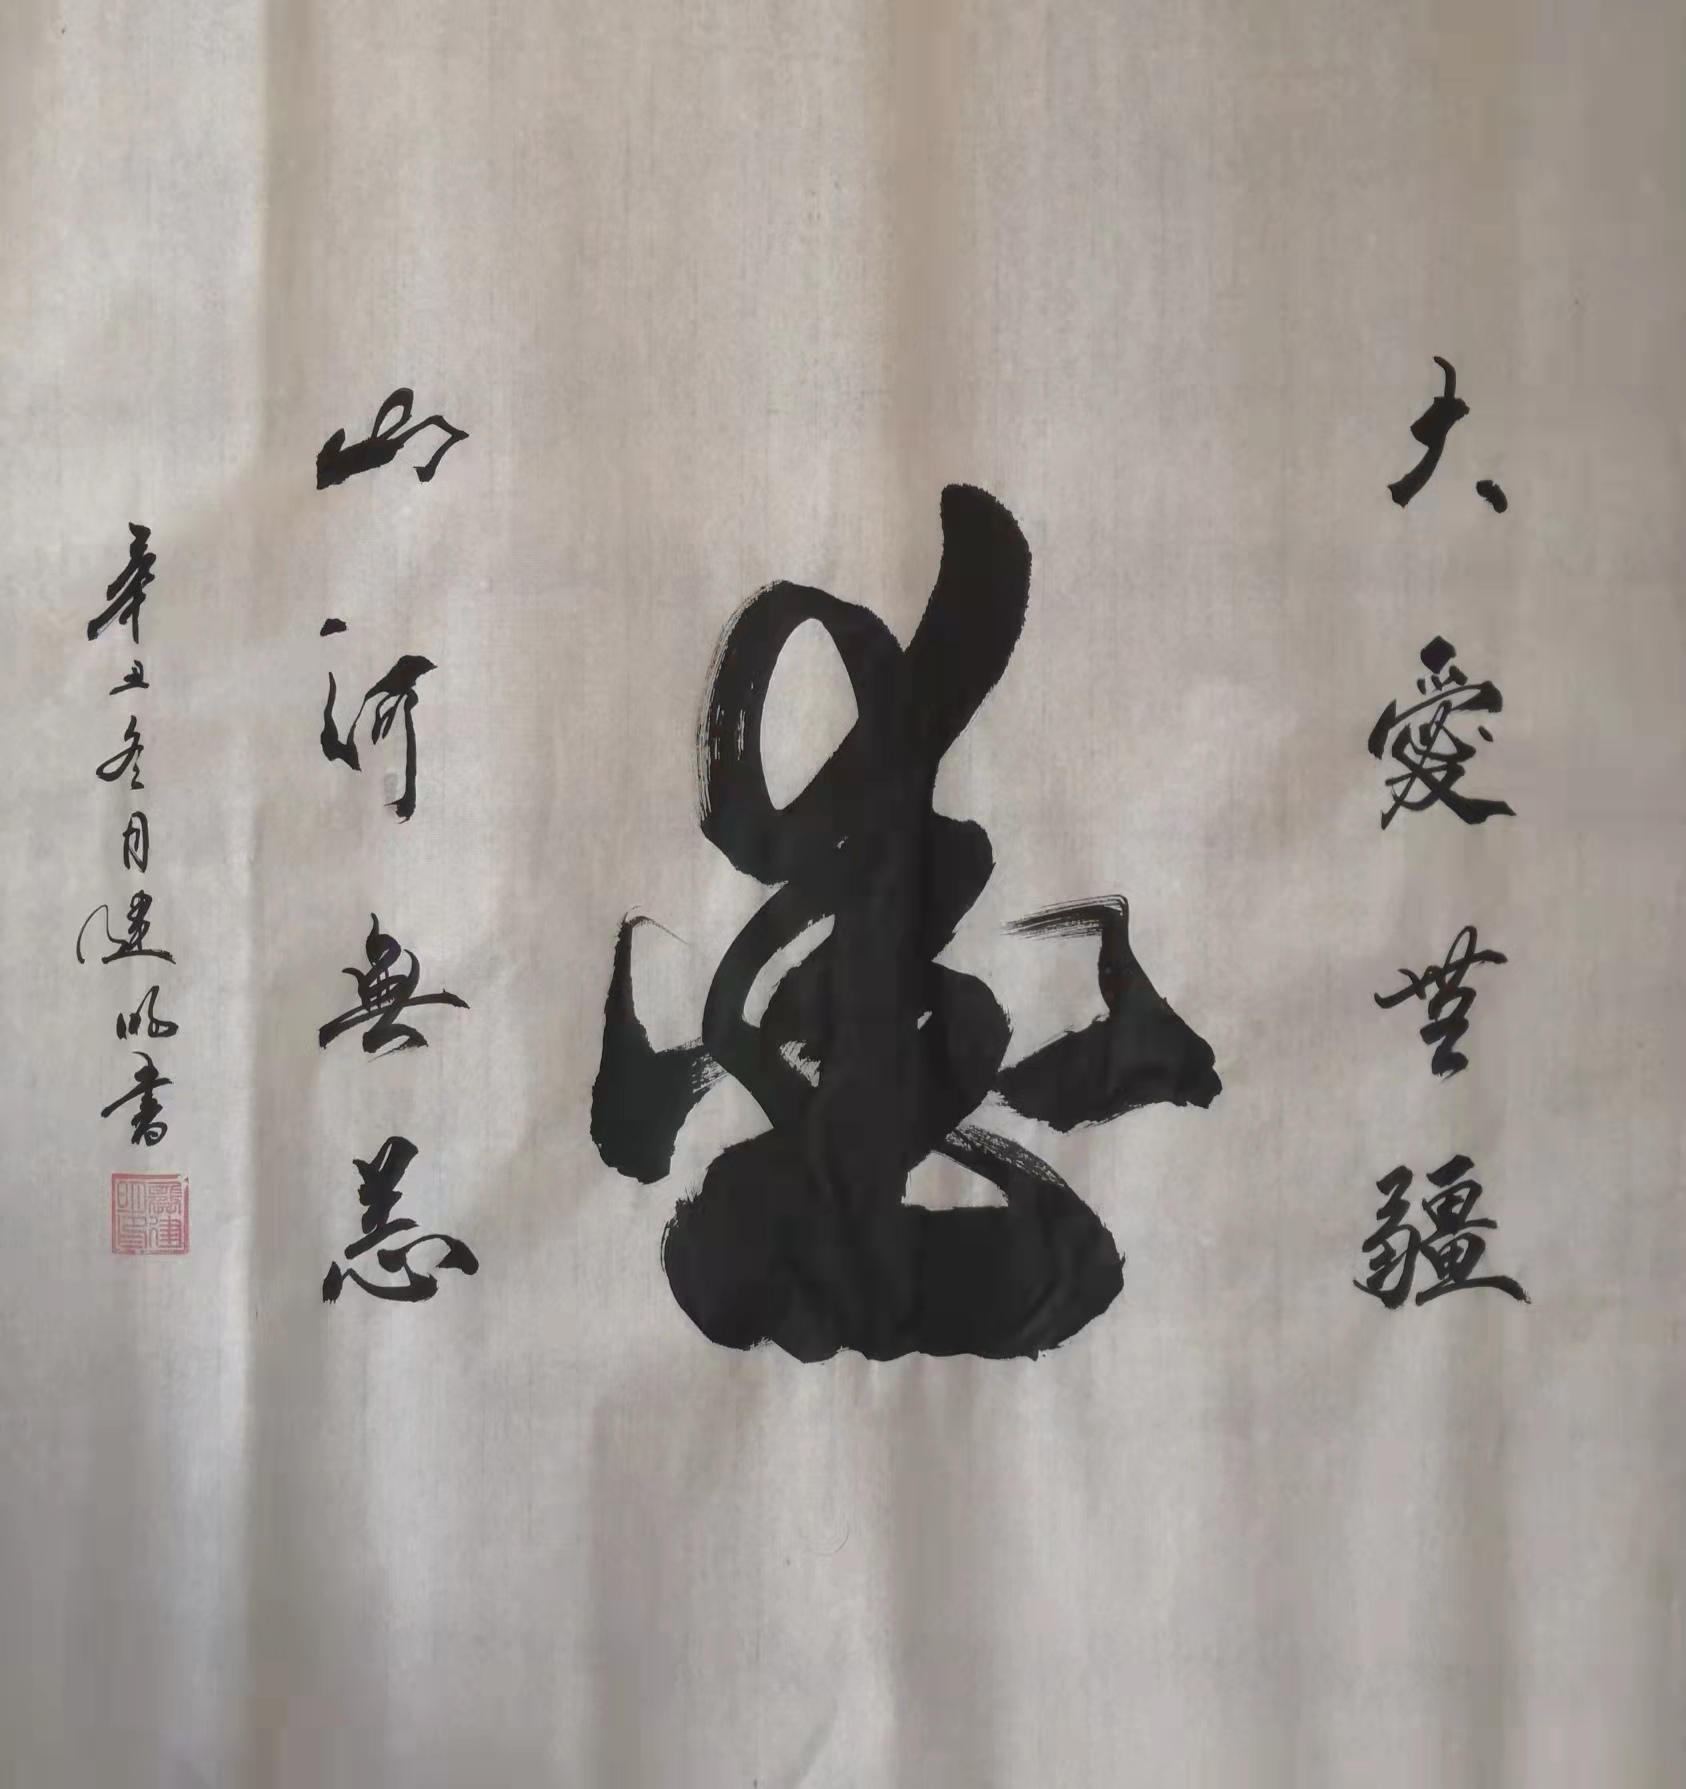 大愛無疆
山河無恙
辛丑冬月建明書